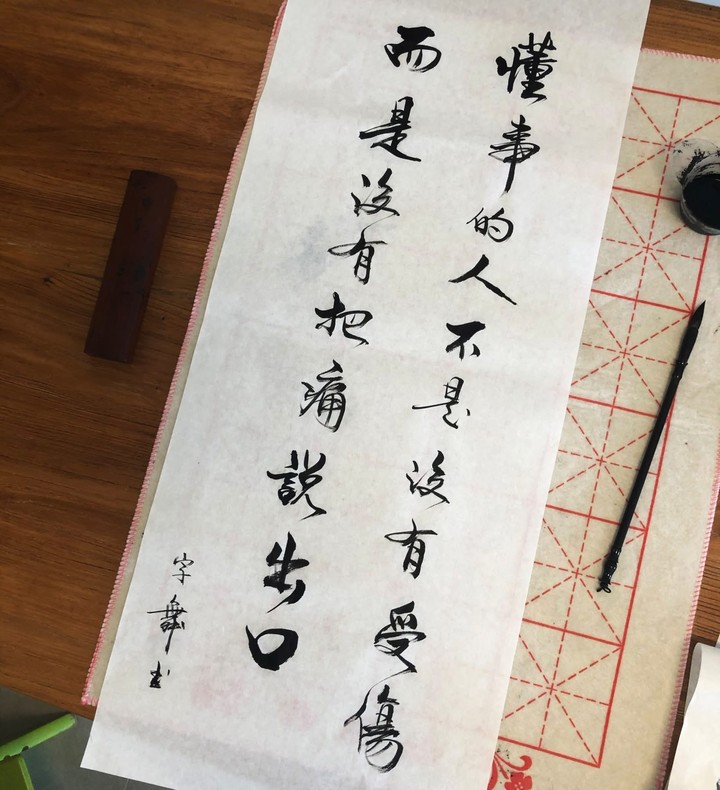 懂事的人不是没有受傷
而是没有把痛説出口
字舞书